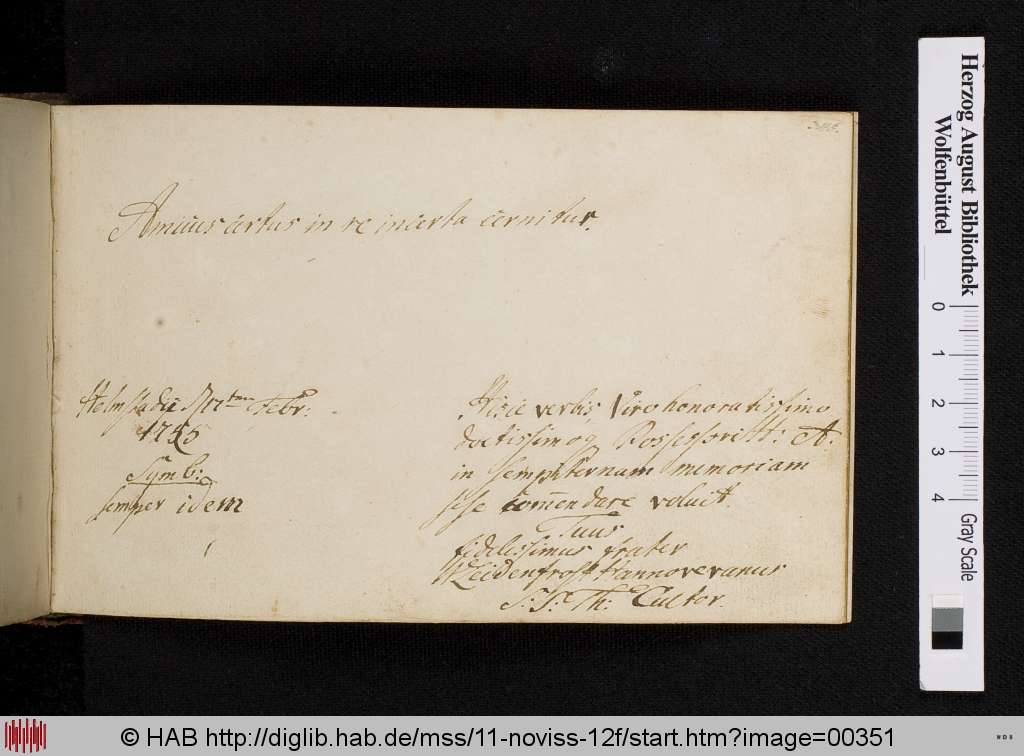 Amicus certus in re incerta cernitur.
Helmstadii
Febr:
1755
Symb:
semper idem
Hisce verbis Viro honoratissimo
doctissimoq Possessori H: A:
in sempiternam memoriam
sese com̄endare voluit
Tuus
fidelissimus frater
Leidenfrost Hannoveranus
S: S: Th: Cultor.
Herzog August Bibliothek
Wolfenbüttel
0 1 2 3 4 Gray Scale
© HAB http://diglib.hab.de/mss/11-noviss-12f/start.htm?image=00351